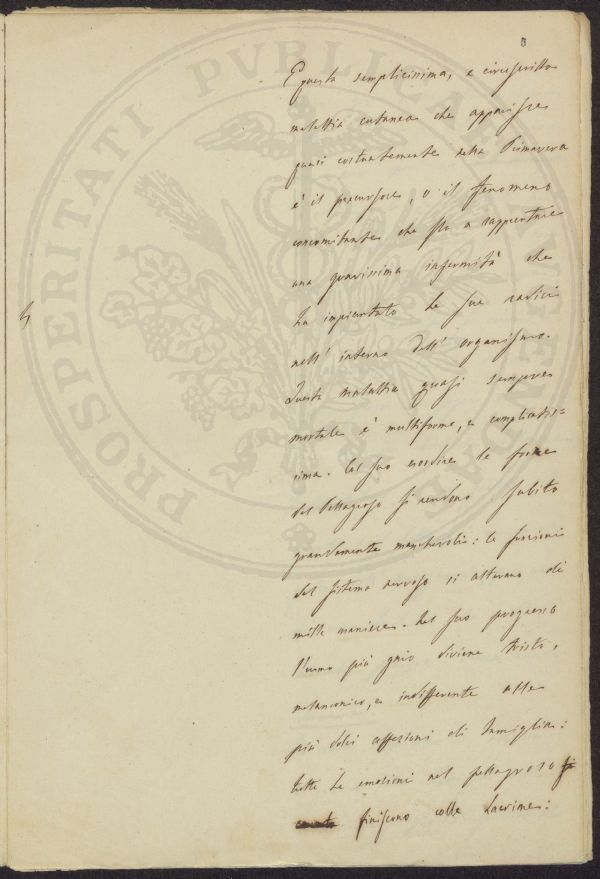 E questa semplicissima, e circoscritta
malattia cutanea che apparisce
quasi costantemente nella Primavera
è il precursore, o il fenomeno
concomitante che sta a rappresentare
una gravissima infermità che
ha impiantato le sue radici
nell' interno dell' organismo.
Questa malattia quasi sempre
mortale è multiforme, e complicatis=
sima. Nel suo esordire le forze
del Pellagroso si rendono subito
grandemente manchevoli: le funzioni
del sistema nervoso si alterano di
mille maniere. Nel suo progresso
l'uomo più gaio diviene tristo,
melanconico, e indifferente alle
più dolci affezioni di famiglia:
tutte le emozioni nel pellagroso
finiscono colle lacrime:
PROSPERITATI PVBLICAE